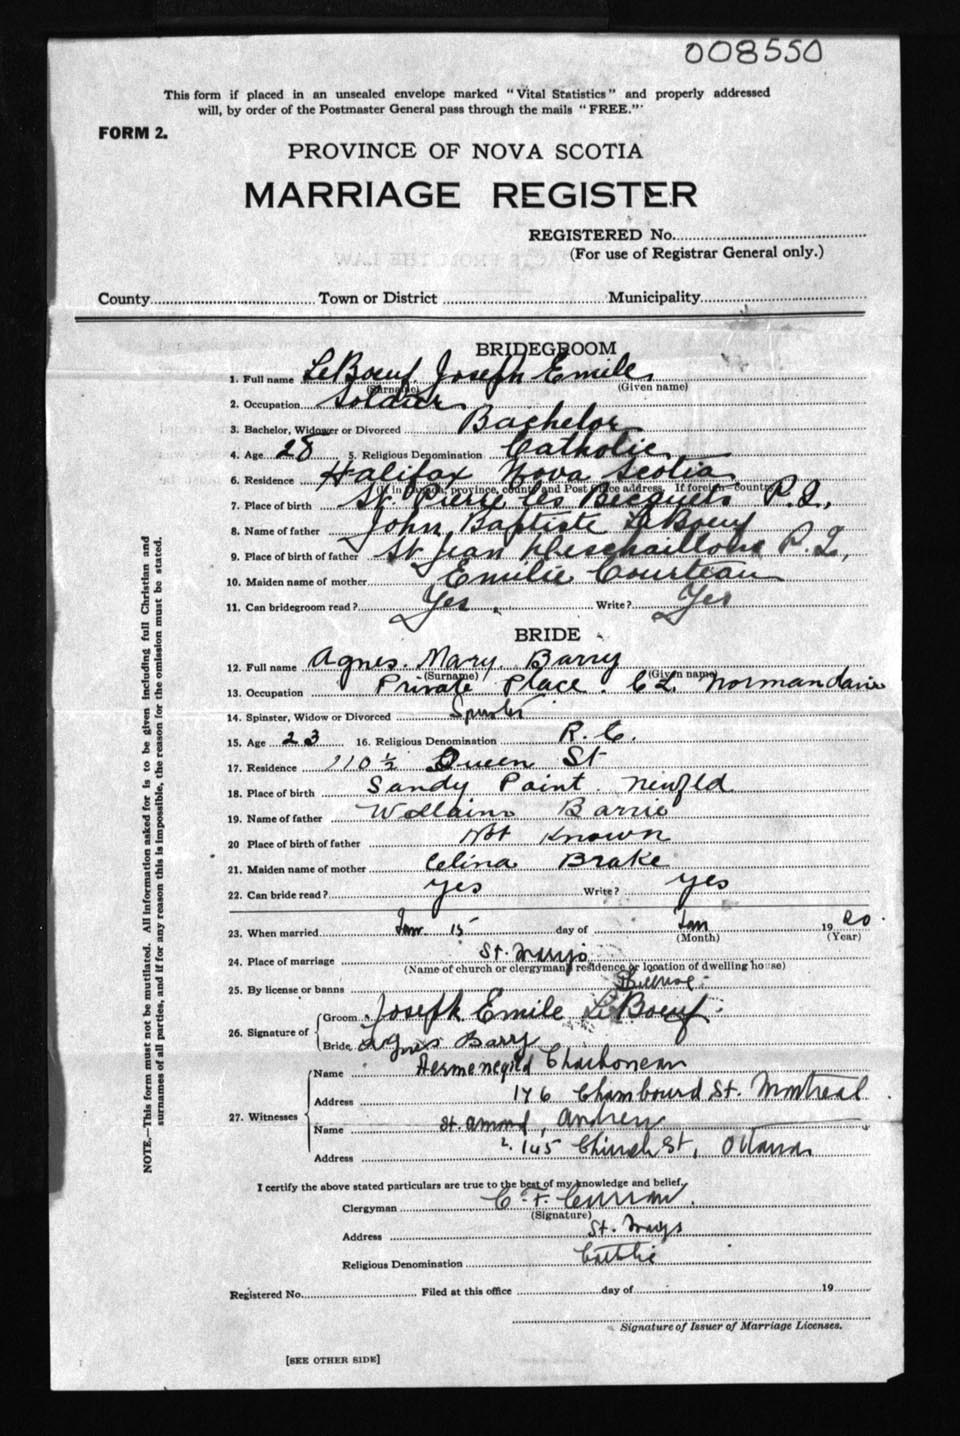 008550
This form if placed in an unsealed envelope marked "Vital Statistics" and properly addressed
will, by order of the Postmaster General pass through the mails "FREE."
FORM 2.
PROVINCE OF NOVA SCOTIA
MARRIAGE REGISTER
REGISTERED No.
(For use of Registrar General only.)
County Town or District Municipality
BRIDEGROOM
1. Full name LeBoeuf, Joseph Emile
(Surname) (Given name)
2. Occupation Soldier
3. Bachelor, Widower or Divorced Bachelor
4. Age 28 5. Religious Denomination Catholic
6. Residence Halifax Nova Scotia
(If in Canada, province, county and Post Office address. If foreign country
7. Place of birth St. Pierre les Becquets P.Q.,
8. Name of father John Baptiste LeBoeuf
9. Place of birth of father St Jean Deschaillons P.Q.,
10. Maiden name of mother Emilie Courteau
11. Can bridegroom read? Yes Write? Yes
BRIDE
12. Full name Agnes. Mary. Barry
(Surname) (Given name)
13. Occupation Private Place. Normandarie
14. Spinster, Widow or Divorced Spinster
15. Age 23 16. Religious Denomination R.C.
17. Residence 110½ Queen St
18. Place of birth Sandy Point. Newfld
19. Name of father Barrie
20 Place of birth of father Not Known
21. Maiden name of mother Celina Brake
22. Can bride read? yes Write? yes
23. When married 15 day of Jan 1920.
(Month) (Year)
24. Place of marriage St. Marys
(Name of church or clergyman's residence or location of dwelling house)
25. By license or banns License
26. Signature of Groom Joseph Emile LeBoeuf
Bride Agnes Barry
27. Witnesses
Name Hermenegild Charboneau
Address 176 Chambourd St. Montreal
Name St. Amond, Andrew
Address 145 Church St, Ottawa
I certify the above stated particulars are true to the best of my knowledge and belief.
Clergyman C. F. Curran
(Signature)
Address St. Marys
Religious Denomination Catholic
Registered No. Filed at this office day of 19
Signature of Issuer of Marriage Licenses.
[SEE OTHER SIDE]
NOTE.—This form must not be mutilated. All information asked for is to be given including full Christian and
surnames of all parties, and if for any reason this is impossible, the reason for the omission must be stated.